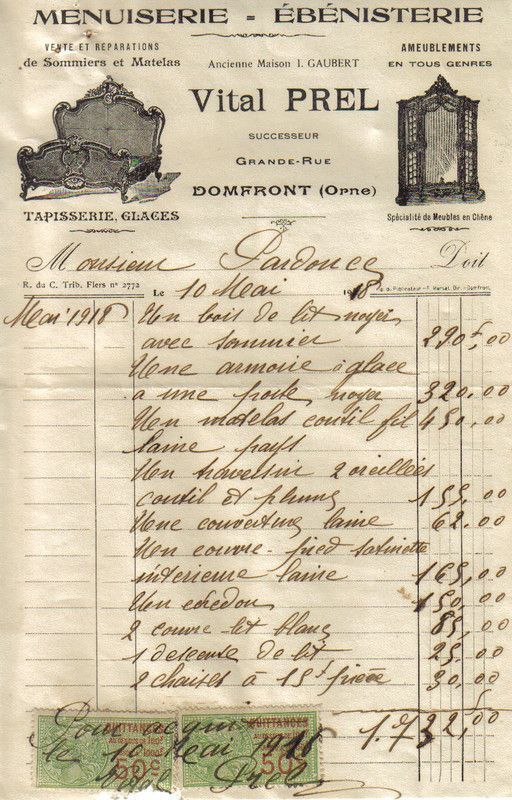 MENUISERIE = ÉBÉNISTERIE
VENTE ET RÉPARATIONS
de Sommiers et Matelas
Ancienne Maison I. GAUBERT
AMEUBLEMENTS
EN TOUS GENRES
Vital PREL
SUCCESSEUR
GRANDE-RUE
DOMFRONT (Orne)
TAPISSERIE, GLACES
Spécialité de Meubles en Chêne
Monsieur Pardouce Doit
R. du C. Trib. Flers nº 2772
Le 10 Mai 1918
Mai 1918 Un bois de lit noyer
avec sommier 290f,00
Une armoire à glace
a une porte noyer 320.00
Un matelas coutil fil 450.00
laine pays
Un traversin 2 oreillées
coutil et plume 155,00
Une couverture laine 62.00
Un couvre-pied satinette
interieure laine 165,00
Un edredon 150,00
2 couvre-lit blanc 85,00
1 descente de lit 25,00
2 chaises à 15f pièce 30,00
1.732,00
QUITTANCES
QUITTANCES
50c
50c
Pour acquit
le 10 Mai 1918
Prel